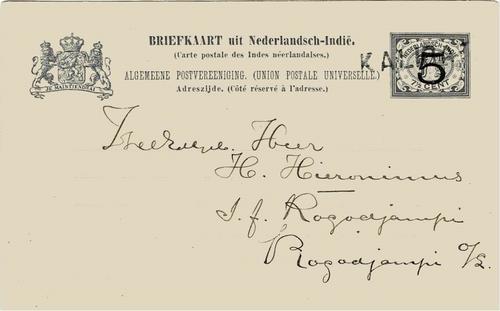 BRIEFKAART uit Nederlandsch-Indië.
(Carte postale des Indes néerlandaises.)
ALGEMEENE POSTVEREENIGING. (UNION POSTALE UNIVERSELLE.)
Adreszijde. (Côté réservé à l'adresse.)
JE MAINTIENDRAI
NEDERLANDSCH-INDIË
5
7½ CENT
Heer
H. Hieronimus
s.f. Rogodjampi
Rogodjampi